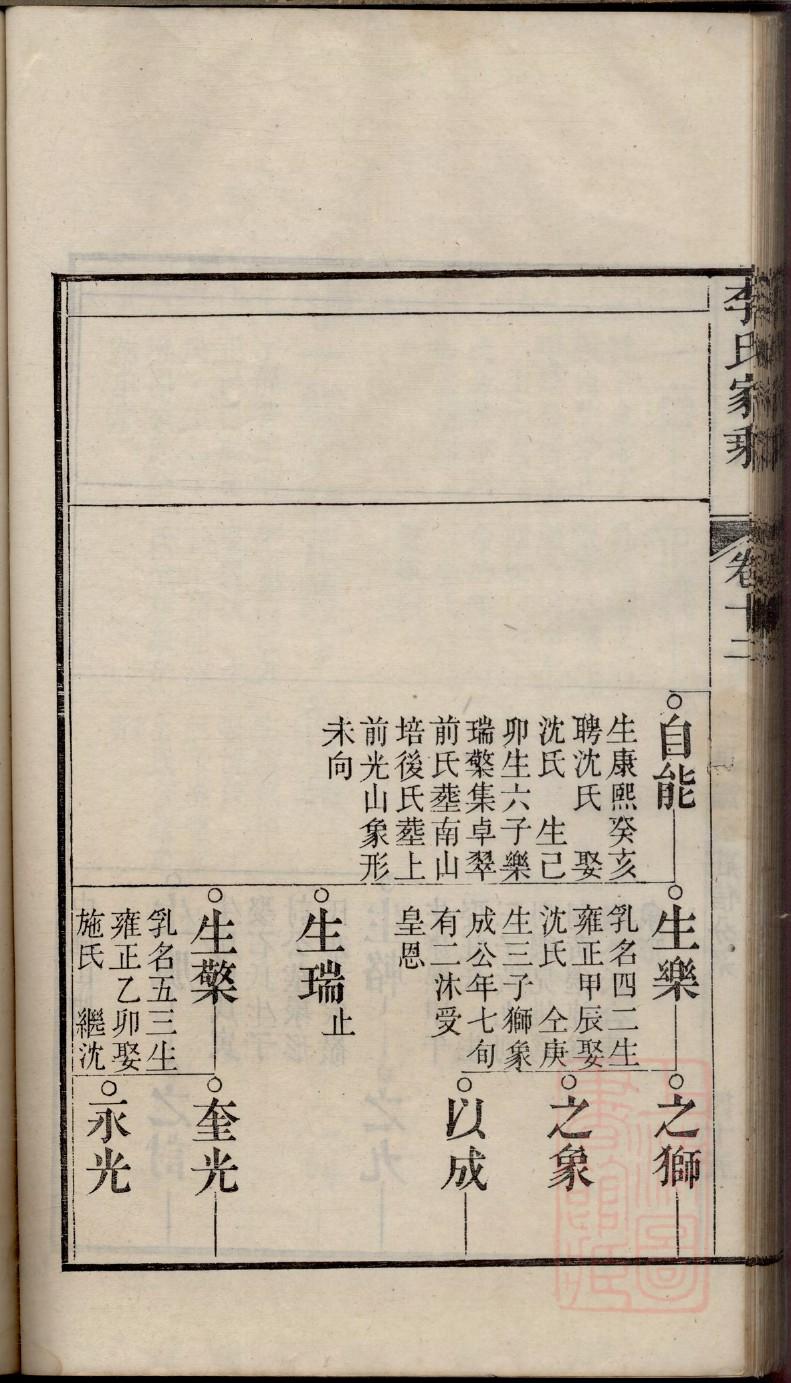 李氏家乘
卷十二
自能
生康熙癸亥
聘沈氏 娶
沈氏 生己
卯生六子樂
瑞檠集卓翠
前氏塟南山
培後氏塟上
前光山象形
未向
生樂
乳名四二生
雍正甲辰娶
沈氏 仝庚
生三子獅象
成公年七旬
有二沐受
皇恩
生瑞止
生檠
乳名五三生
雍正乙卯娶
施氏 繼沈
之獅
之象
以成
奎光
永光